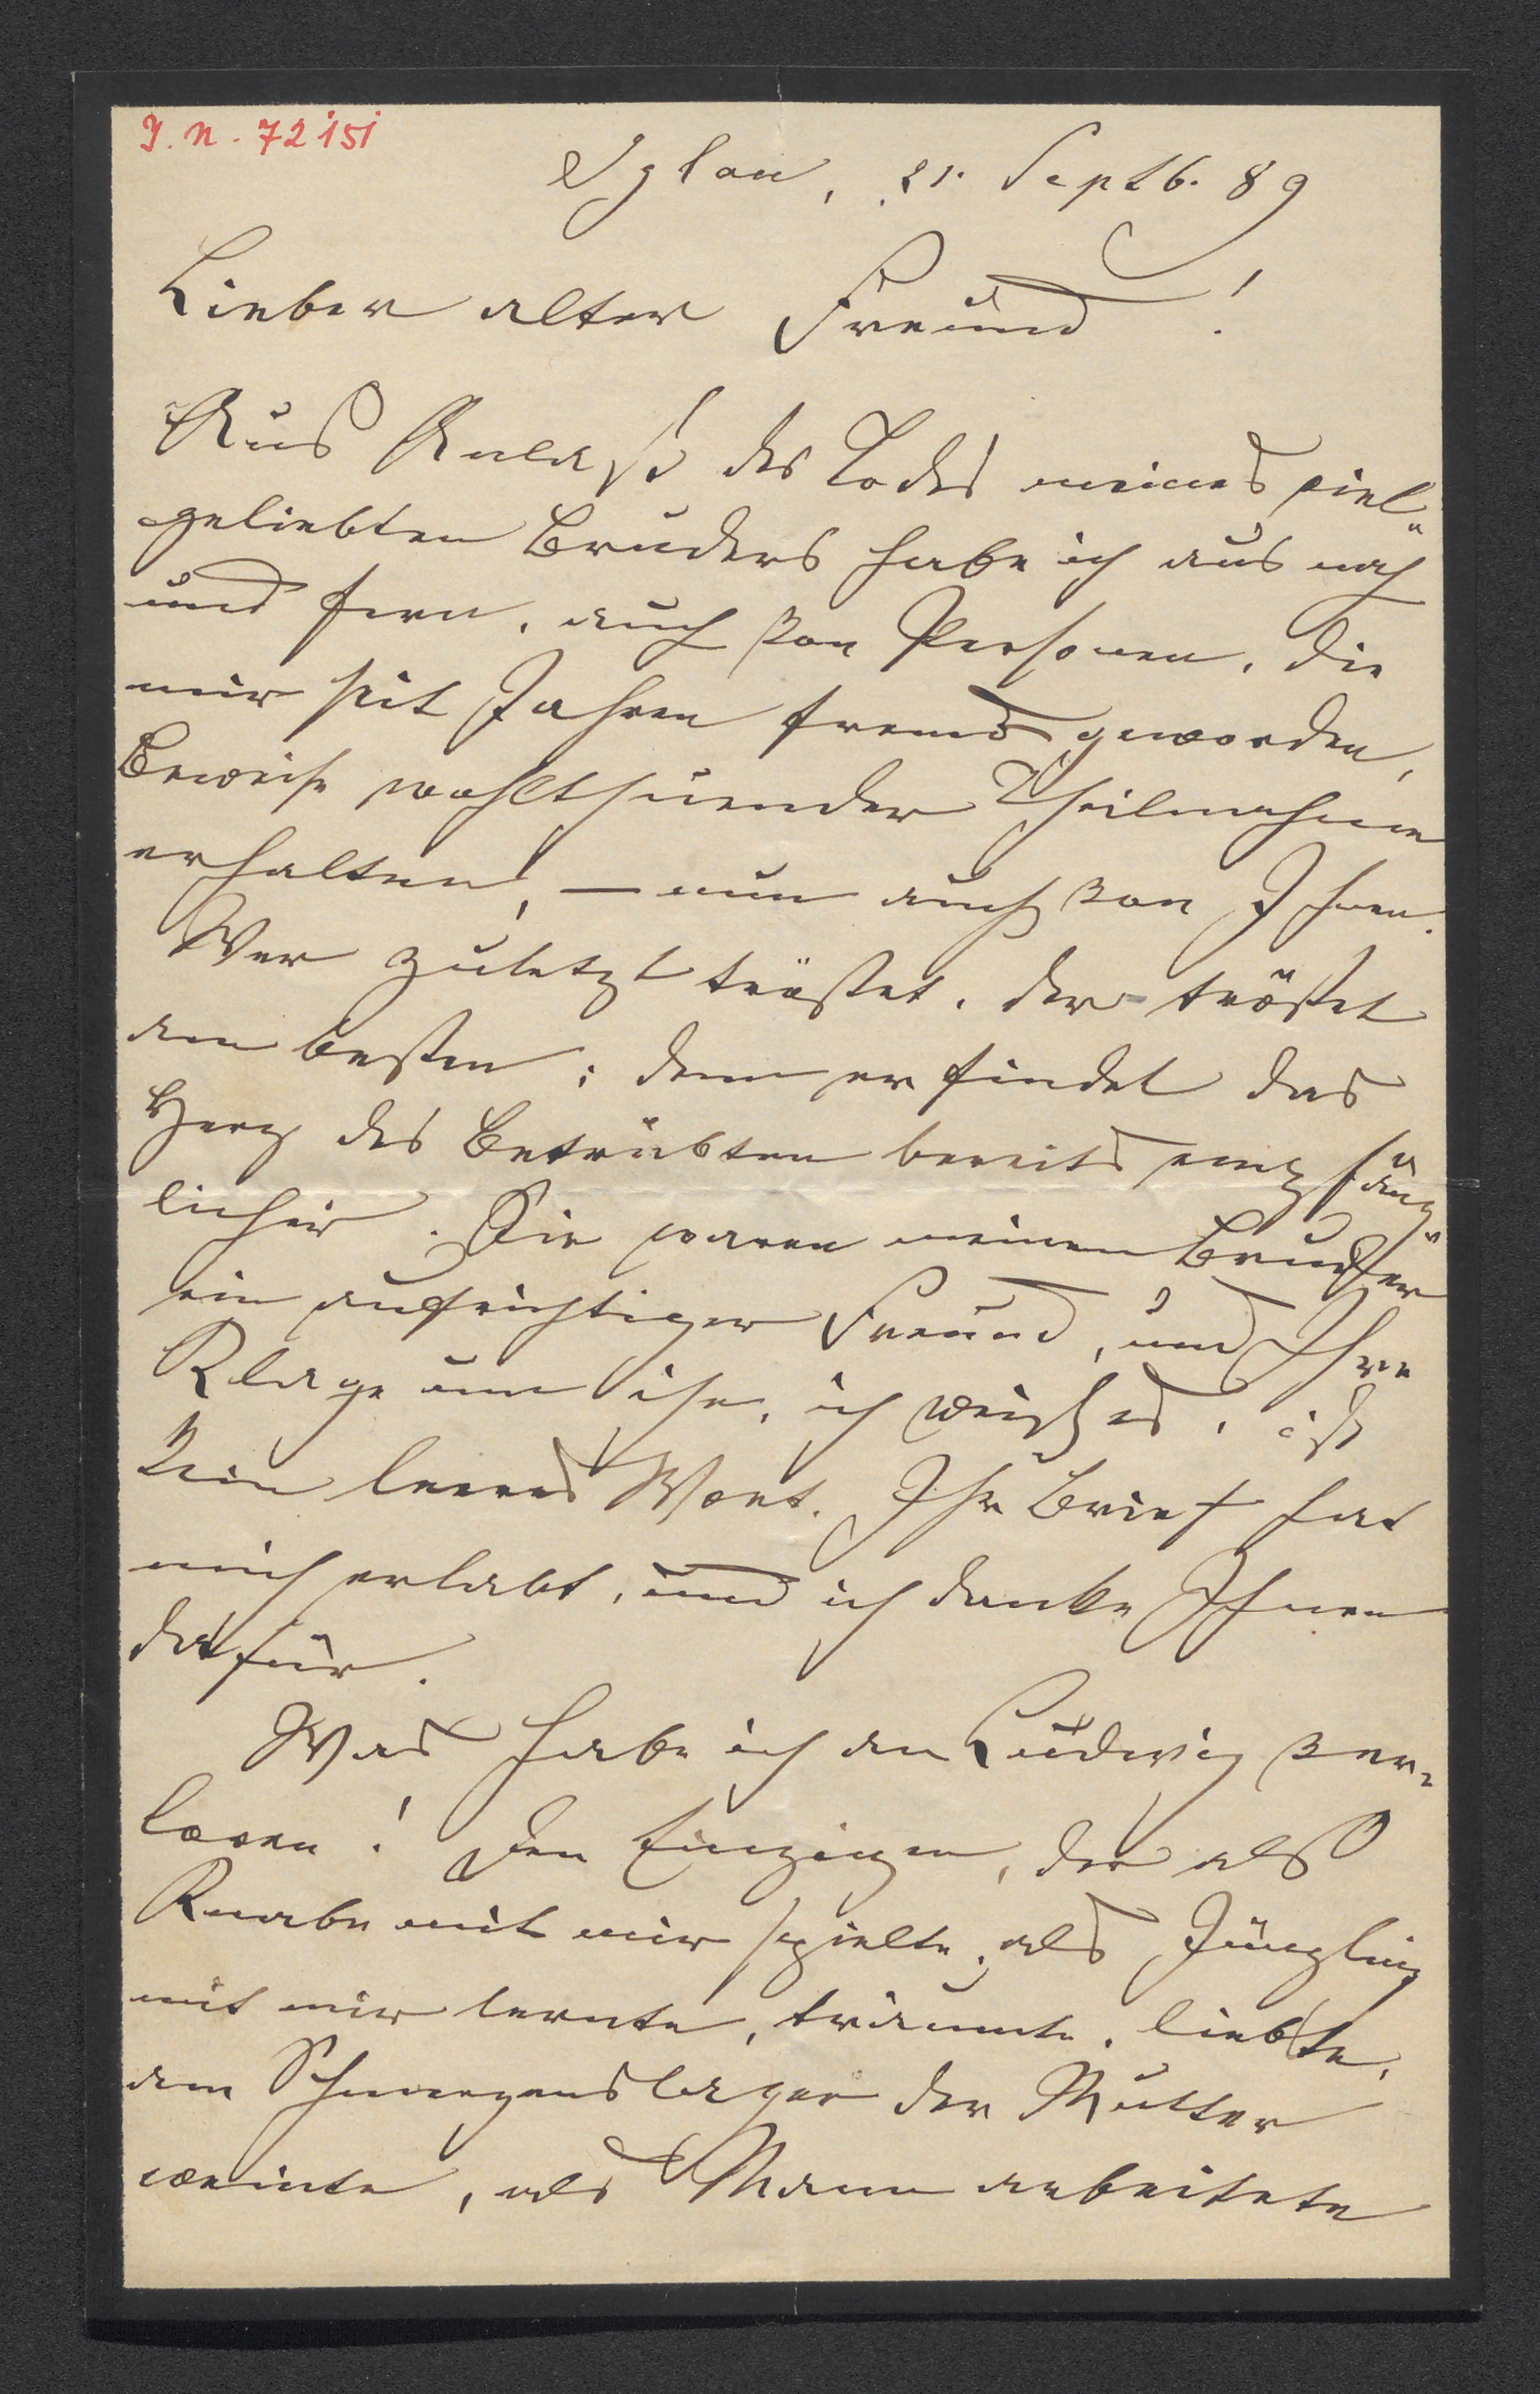 I. N. 72151
Iglau, 21. Septb. 89
Lieber alter Freund!
Aus Anlaß des Todes meines viel-
geliebten Bruders habe ich aus nah
und fern, auch von Personen, die
mir seit Jahren fremd geworden,
Beweise wohlthuender Theilnahme
erhalten, – nun auch von Ihnen.
Wer zuletzt tröstet, der tröstet
am besten; denn er findet das
Herz des Betrübten bereits empfäng-
licher. Sie waren meinem Bruder
ein aufrichtiger Freund, und Ihre
Klage um ihn, ich weiß es, ist
kein leeres Wort. Ihr Brief hat
mich erlabt, und ich danke Ihnen
dafür.
Was habe ich an Ludwig ver-
loren! Den Einzigen, der als
Knabe mit mir spielte, als Jüngling
mit mir lernte, träumte, liebte,
am Schmerzenslager der Mutter
weinte, als Mann arbeitete